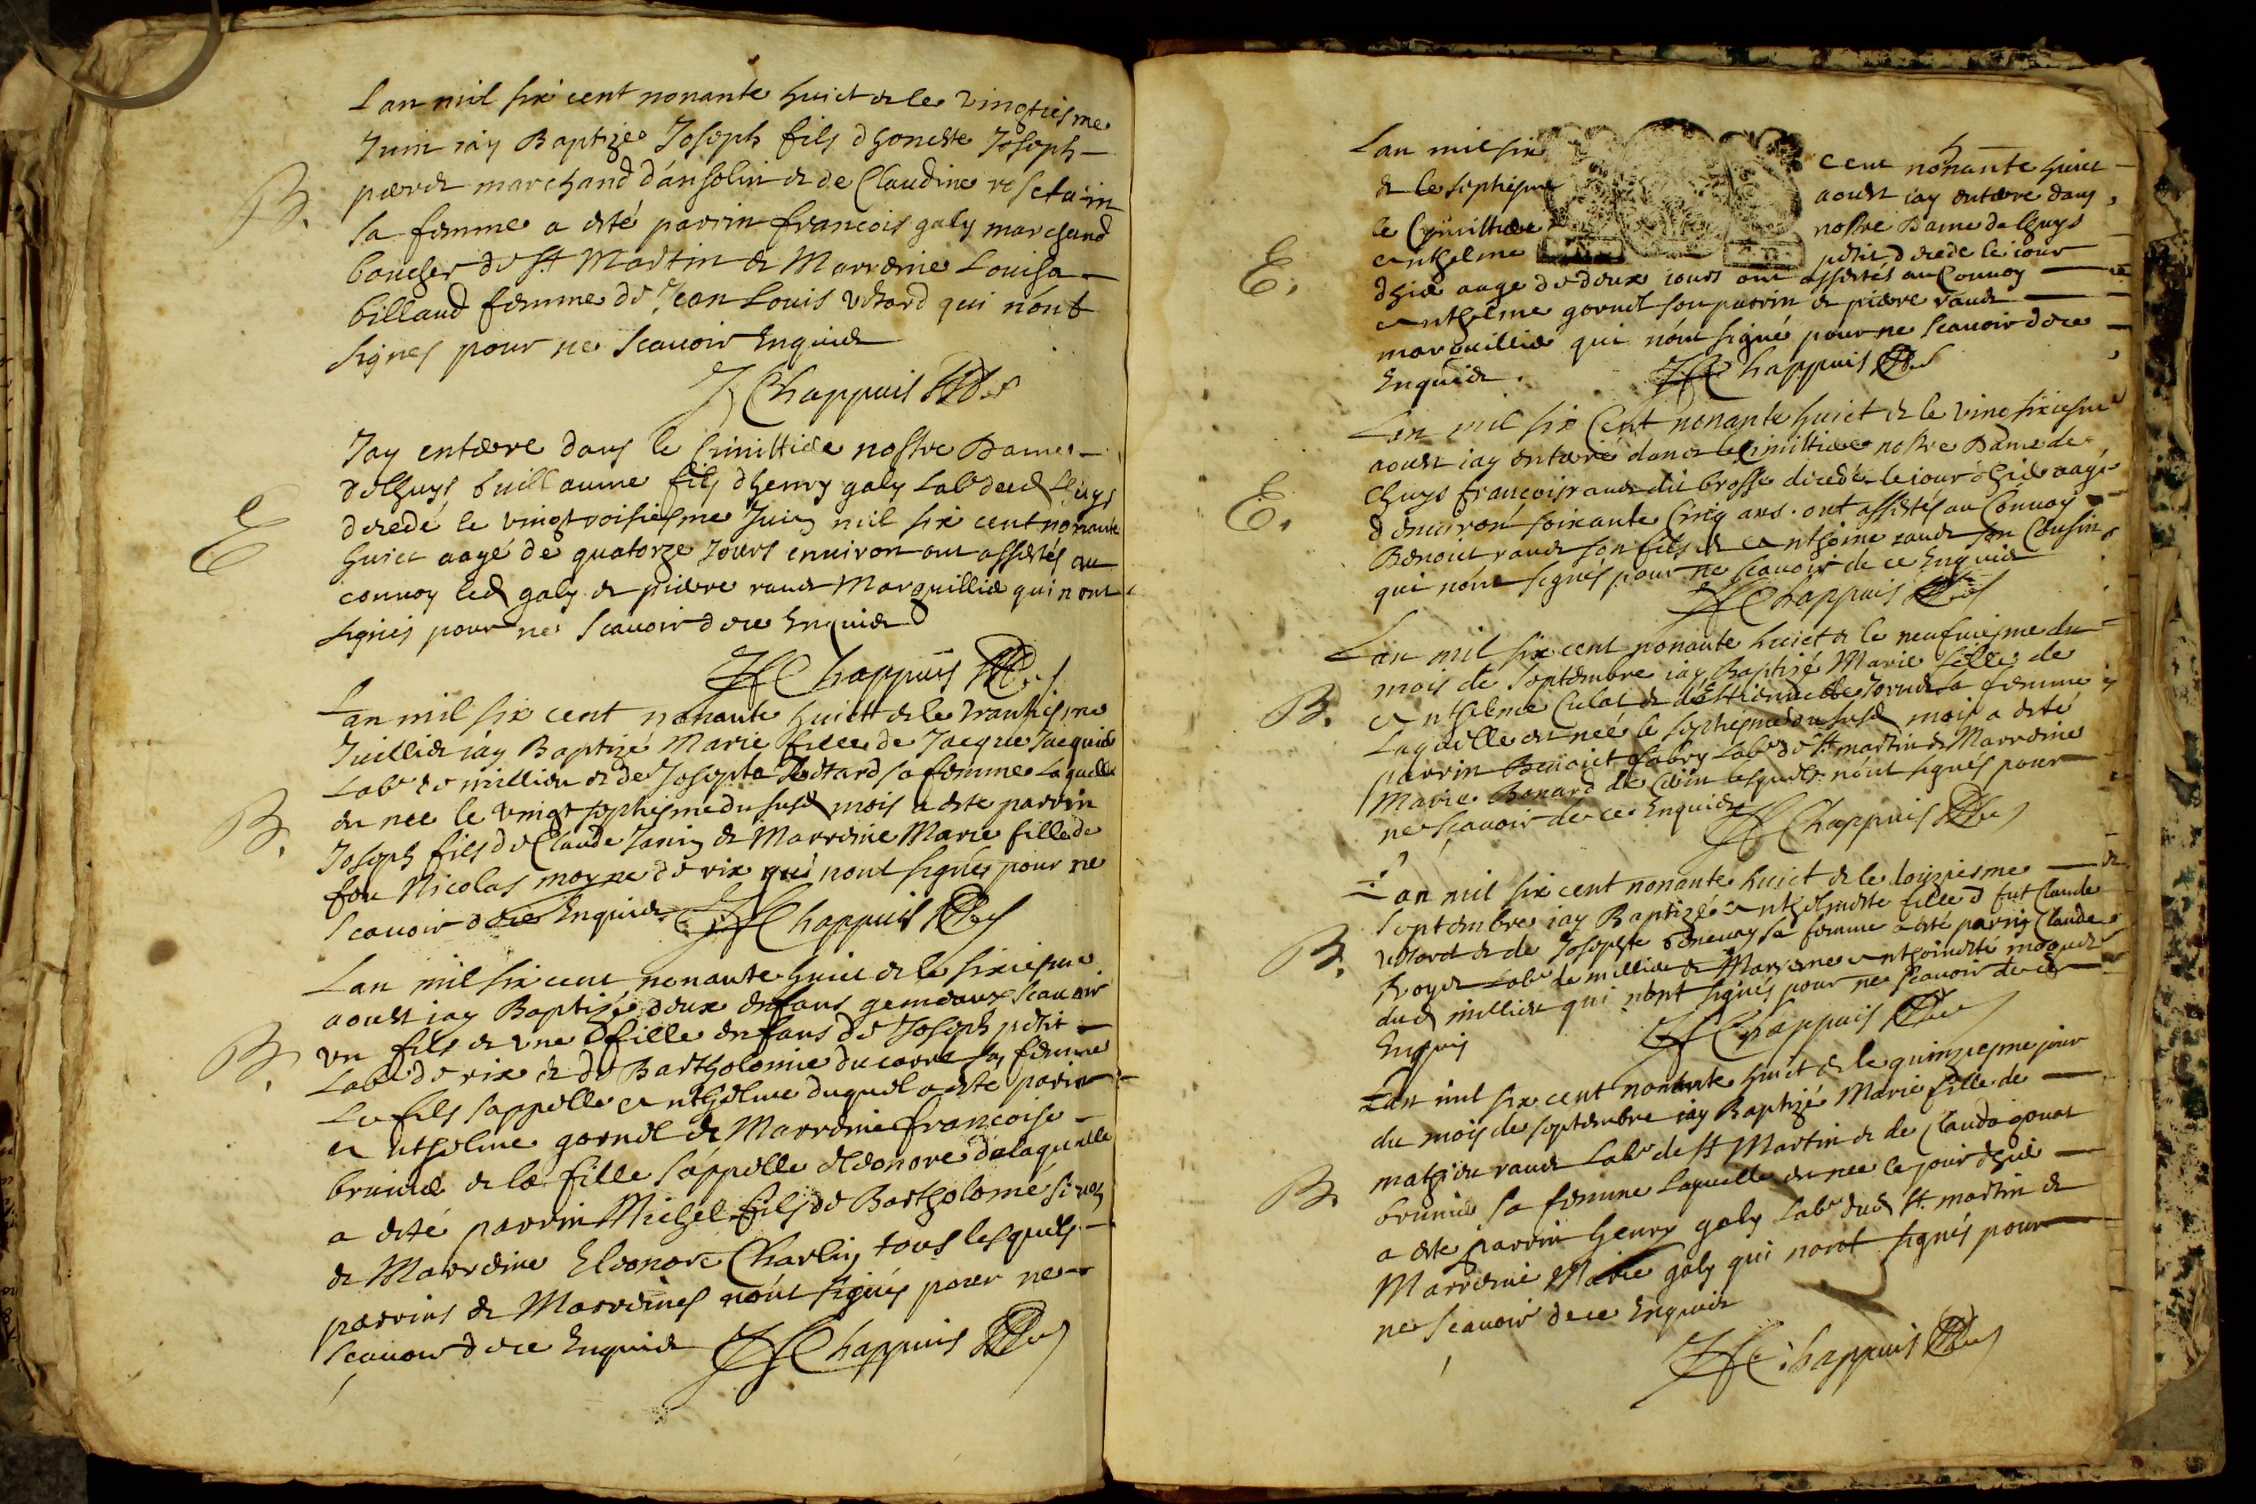 Lan mil six cent nonante huict & le vingtiesme
Juin iay Baptizé Joseph fils dhoneste Joseph
marchand dansolin & de Claudine
B.
sa femme a esté parrin francois galy marchand
boucher de St Martin & Marreine Louisa
billaud femme de Jean Louis vetard qui nont
signes pour ne scauoir Enquis
J Chappuis
Jay enterre dans le Cimittiere nostre Dame
de lhuys Guillaume fils dhenry galy Labr dud Lhuys
E
decedé le vingtroisiesme Juin mil six cent nonante
huict aagé de quatorze Jours enuiron ont assistés au
conuoy led galy & pierre raud Marguillier qui nont
signés pour ne scauoir de ce Enquis
J Chappuis
Lan mil six cent nonante huict & le trantiesme
Juillet iay Baptizé Marie fille de Jacque Jacquier
Labr de millieu & de Josepte vetard sa femme Laquelle
B.
est nee le vingt septiesme du susd mois a esté parrin
Joseph fils de Claude Janin & Marreine Marie fille de
feu Nicolas moyne de rix qui nont signés pour ne
scauoir de ce Enquis J Chappuis
Lan mil six cent nonante huict & le sixiesme
aoust iay Baptizé deux enfans gemeaux scauoir
B.
vn fils & vne fille enfans de Joseph petit
Labr de rix & de Bartholomie ducarre sa femme
Le fils sappelle anthelme duquel a esté parrin
anthelme gornet & Marreine francoise
brunier & la fille sappelle eleonore de laquelle
a esté parrin Michel fils de Bartholomé
& Marreine Eleonore Charlin tous lesquels
parrins & Marreines nont signés pour ne
scauoir de ce Enquis J Chappuis
Lan mil six cent nonante huict
& le septiesme aoust iay enterre dans
le Cimittiere nostre Dame de lhuys
E.
anthelme petit decede le iour
dhier aage de deux iours ont assistés au Conuoy
anthelme gornet son parrin & pierre raud
marguillier qui nont signé pour ne scauoir de ce
Enquis. J Chappuis
Lan mil six Cent nonante huict & le vint sixiesme
aoust iay enterré dans le Cimittiere nostre Dame de
E.
lhuys francois raud dit brosse decedé le iour dhier aagé
denuiron soixante Cinq ans. ont assistés au Conuoy
Benoit raud son fils & anthoine raud son Cousin
qui nont signés pour ne scauoir de ce Enquis
J Chappuis
Lan mil six cent nonante huict & le neufuiesme du
mois de septembre iay Baptizé Marie fille de
B.
anthelme Culat & destiennette sa femme
Laquelle est neé le septiesme du susd mois a esté
parrin Benoict fabry Labr de St martin & Marreine
Marie Bonard de lesquels nont signés pour
ne scauoir de ce Enquis J Chappuis
Lan mil six cent nonante huict & le
septembre iay Baptizé anthelmette fille de Claude
B.
vetard & de Josepte sa femme a esté parrin Claude
Royer Labr de millieu & Marreine anthoinette
dud millieu qui nont signés pour ne scauoir de ce
Enquis J Chappuis
Lan mil six cent nonante huict & le quinziesme jour
du mois de septembre iay Baptizé Marie fille de
mathieu raud Labr de St Martin & de Clauda gonat
B.
brunier sa femme Laquelle est nee le jour dhier
a esté parrin henry galy Labr dud St. martin &
Marreine Marie galy qui nont signés pour
ne scauoir de ce Enquis
J Chappuis